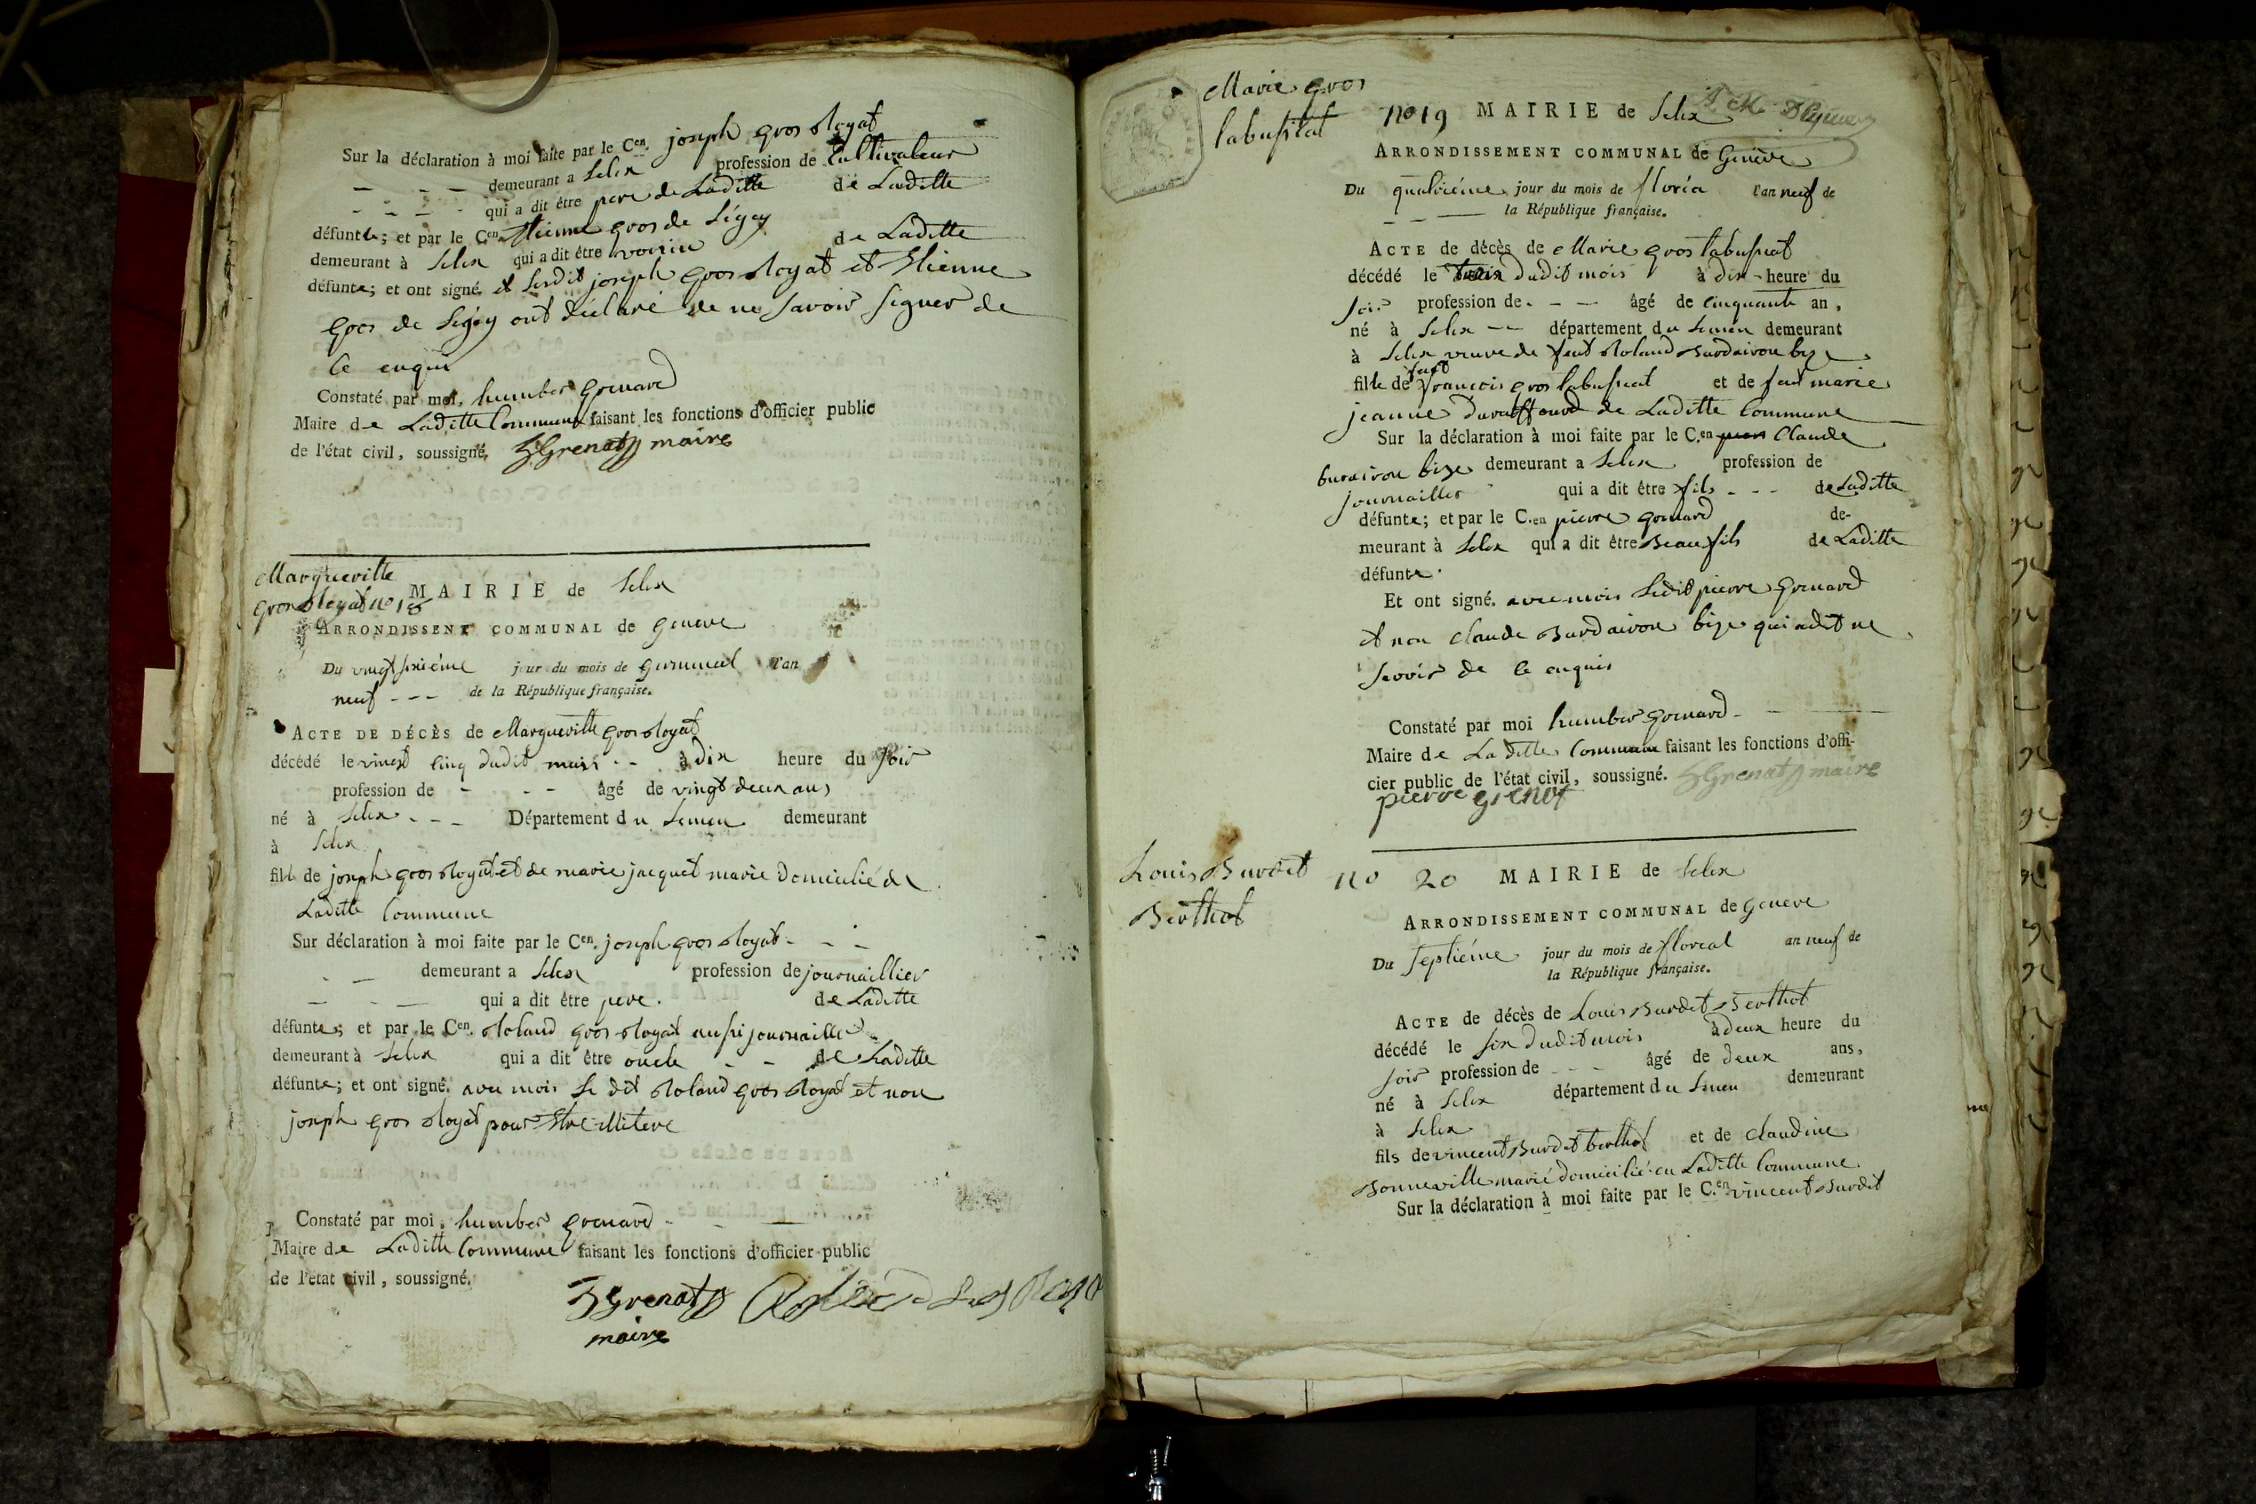 Sur la déclaration à moi faite par le Cen. joseph gros Royat
demeurant a Selex profession de Cultivateur
qui a dit être pere de Laditte de Laditte
défunte; et par le Cen. Etienne gros de Ségoy
demeurant à Selex qui a dit être voisin de Laditte
défunte; et ont signé. et Lesdit joseph gros Royat et Etienne
gros de Ségoy ont déclaré de ne savoir signer de
ce enquis
Constaté par moi, humber Grenard
Maire de Laditte Commune faisant les fonctions d'officier public
de l'état civil, soussigné. hGrenat maire
Margueritte
gros Royat no 18
MAIRIE de Selex
ARRONDISSENT COMMUNAL de Geneve
Du vingt sixiéme jour du mois de Germinal l'an
neuf - - - de la République française.
ACTE DE DÉCÈS de Margueritte gros Royat
décédé le vingt cinq dudit mois - - à dix heure du soir
profession de - - - âgé de vingt deux ans
né à Selex - - - Département du Leman demeurant
à Selex
fille de joseph gros Royat et de marie jacquet marie Domicilié de
Laditte Commune
Sur déclaration à moi faite par le Cen. joseph gros Royat - - -
demeurant a Selex profession de journaillier
qui a dit être pere. de Laditte
défunte; et par le Cen. Roland gros Royat aussi journaillier
demeurant à Selex qui a dit être oncle - - de Laditte
défunte; et ont signé. avec mois Le dit Roland gros Royat et non
joseph gros Royat pour Etre illitere
Constaté par moi, humber Grenard - - -
Maire de Laditte Commune faisant les fonctions d'officier public
de l'etat civil, soussigné.
hGrenat
maire
Marie gros
labussiat
No 19 MAIRIE de Selex
ARRONDISSEMENT COMMUNAL de Genève
Du quatriéme jour du mois de floréa l'an neuf de
la République française.
ACTE de décès de Marie gros labussiat
décédé le trois dudit mois à dix heure du
soir profession de. - - âgé de cinquante an,
né à Selex - - département du Leman demeurant
à Selex veuve de feut Roland Burdairon bize
fille de feut francois gros labussiat et de feut marie
jeanne Duraffourd de Laditte Commune
Sur la déclaration à moi faite par le C.en Claude
burdairon bize demeurant a Selex profession de
journaillier qui a dit être fils - - - de Laditte
défunte; et par le C.en pierre grenard de-
meurant à Selex qui a dit être Beaufils de Laditte
défunte.
Et ont signé. avec mois Ledit pierre Grenard
et non claude Burdairon bize qui a dit ne
savoir de ce enquis
Constaté par moi humber Grenard - -
Maire de La ditte Commune faisant les fonctions d'offi-
cier public de l'état civil, soussigné. hGrenat maire
pierre grenat
Louis Burdet
Berthot
no 20 MAIRIE de Selex
ARRONDISSEMENT COMMUNAL de Geneve
Du septiéme jour du mois de floreal an neuf de
la République française.
ACTE de décès de Louis Burdet Berthot
décédé le six dudit mois à deux heure du
soir profession de - - - âgé de deux ans,
né à Selex département du Leman demeurant
à Selex
fils de vincent Burdet berthot et de claudine
Bonneville marié domicilié en Laditte Commune
Sur la déclaration à moi faite par le C.en vincent Burdet